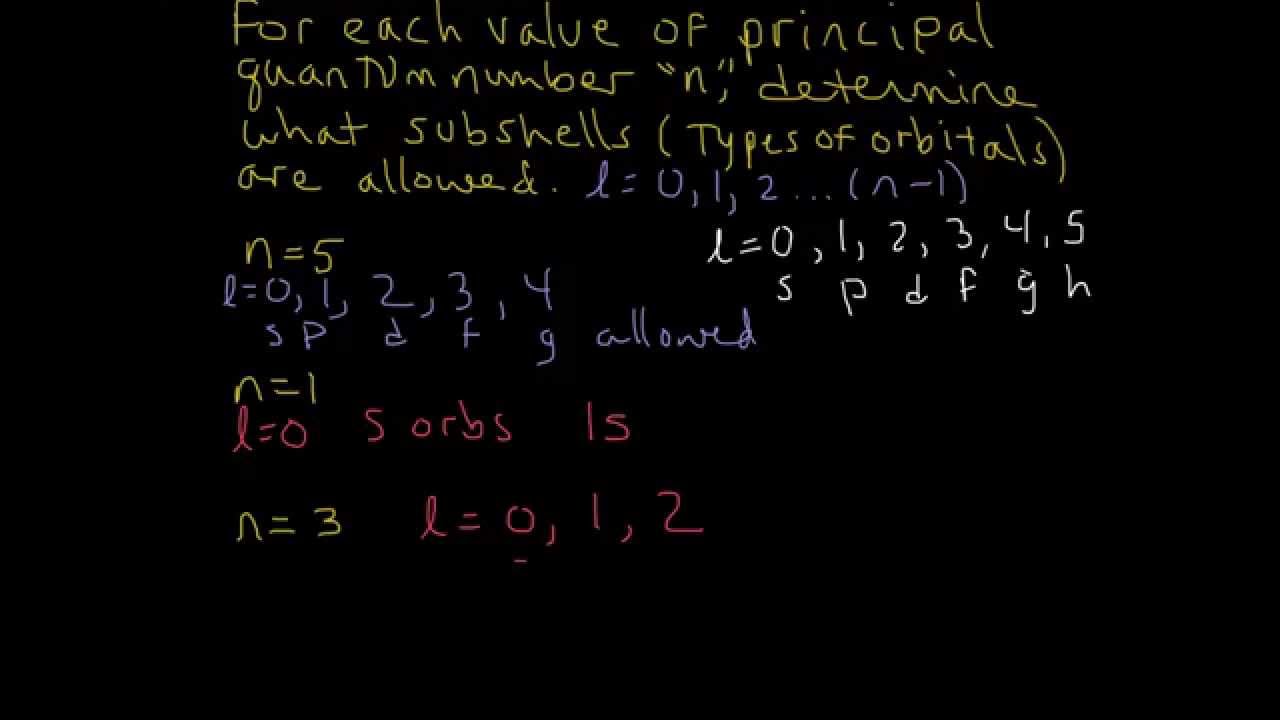 For each value of principal
quantum number "n," determine
what subshells (Types of orbitals)
are allowed. l = 0, 1, 2 ... (n-1)
l = 0, 1, 2, 3, 4, 5
s p d f g h
n = 5
l = 0, 1, 2, 3, 4
s p d f g allowed
n = 1
l = 0 s orbs 1s
n = 3 l = 0, 1, 2